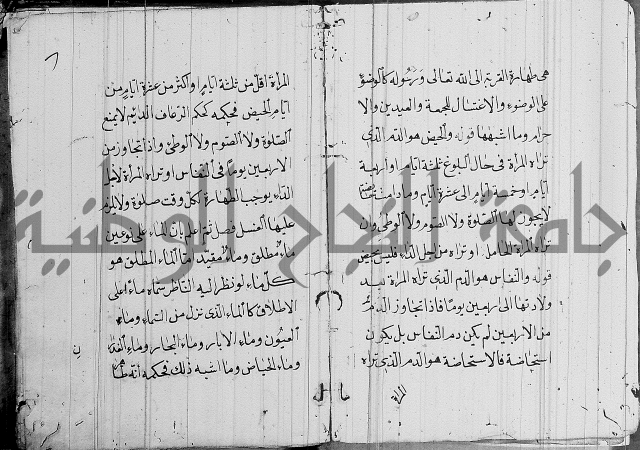 هي طهارة القربة الى الله تعالى ورسوله كالوضوء
على الوضوء والاغتسال للجمعة والعيدين والا
حرام وما اشبهها قوله والحيض هو الدم الذى
تراه المراة في حال البلوغ ثلثة ايام واربعة
ايام وخمسة ايام الى عشرة ايام وما دامت
لا يجوز لها الصلوة ولا الصوم ولا الوطئ وان
تراه المراة الحامل او تراه من اجل الداء فليس بحيض
قوله والنفاس هو الدم الذى تراه المراة بعد
ولادتها الى اربعين يوما فاذا تجاوز الدم
من الاربعين لم يكن دم النفاس بل يكون
استحاضة فالاستحاضة هو الدم الذى تراه
المراة
المراة اقل من ثلثة ايام او اكثر من عشرة ايام من
ايام الحيض فحكمه كحكم الرعاف الدايم لا يمنع
الصلوة ولا الصوم ولا الوطئ واذا تجاوز من
الاربعين يوما في النفاس او تراه المراة لاجل
الداء يوجب الطهارة لكل وقت صلوة ولا يلزم
عليها الغسل فصل ثم اعلم بان الماء على نوعين
ماء مطلق وماء مقيد اما الماء المطلق هو
كل ماء لو نظر اليه الناظر سماه ماء على
الاطلاق كالماء الذى نزل من السماء وماء
العيون وماء الابار وماء البحار وماء
وماء الحياض وما اشبه ذلك فحكمه انه
جامعة النجاح الوطنية